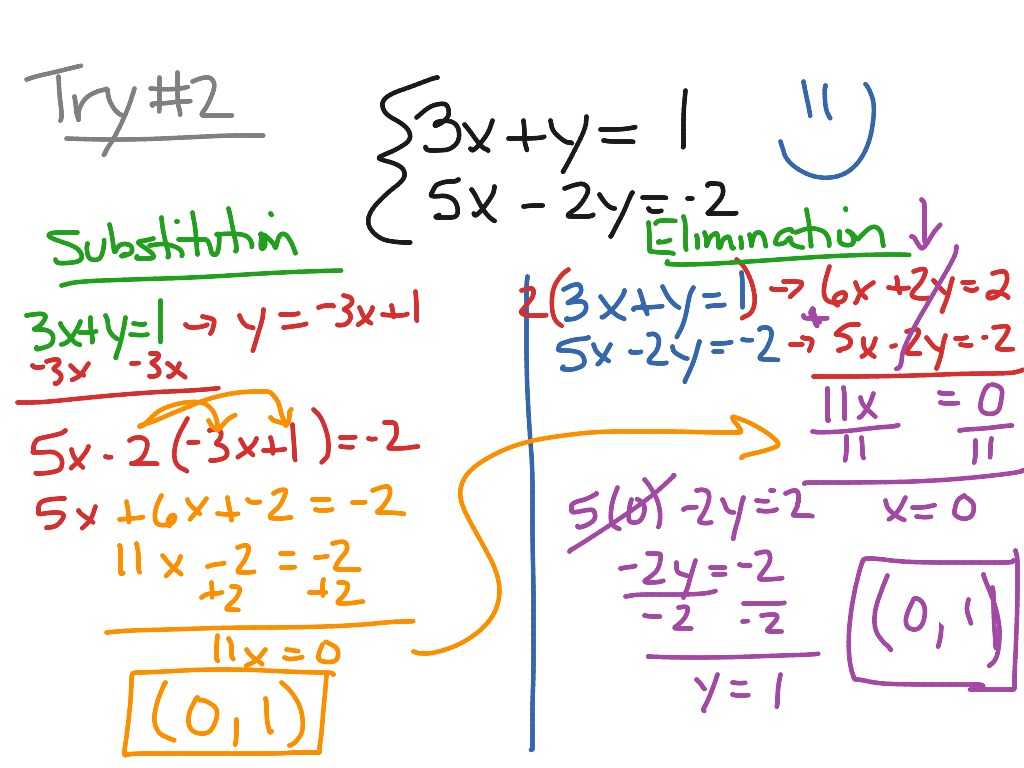 Try #2
3x + y = 1
5x - 2y = -2
Substitution
3x+y=1 → y = -3x+1
-3x -3x
5x - 2(-3x+1) = -2
5x +6x + -2 = -2
11x -2 = -2
+2 +2
11x = 0
(0, 1)
Elimination
2(3x+y=1) → 6x+2y=2
+
5x-2y=-2 → 5x-2y=-2
11x = 0
11 11
x=0
5(0) -2y=-2
-2y=-2
-2 -2
y=1
(0, 1)